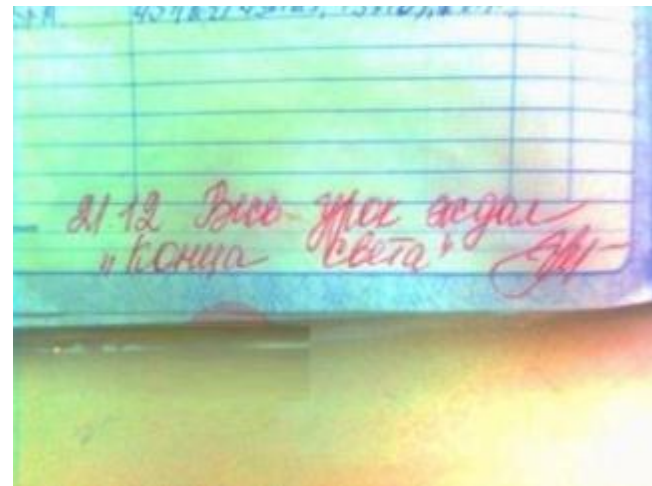 21.12 Весь урок ждал
"Конца света"